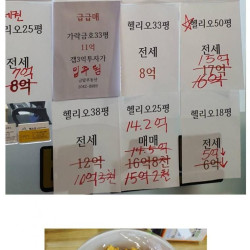 헬리오25평
전세
7억
8억
급급매
가락금호33평
11억
갭3억투자가
헬리오33평
전세
8억
헬리오50평
전세
헬리오38평
전세
12억
10억3천
헬리오25평
14.2억
매매
14.5억
16억8천
15억2천
헬리오18평
전세
5억
6억